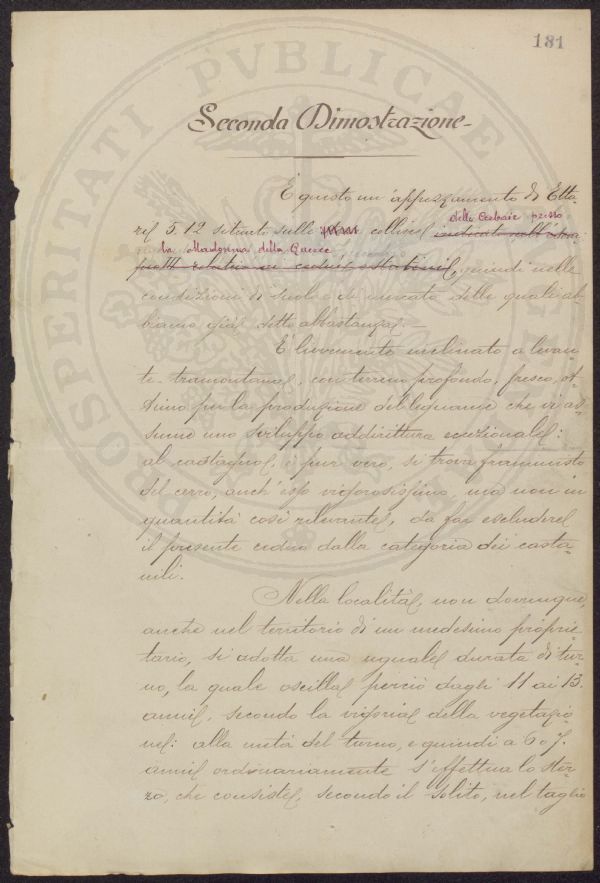 181
PROSPERITATI PVBLICAE
Seconda Dimostrazione
È questo un'appezzamento di Etta-
re 5.12 situato sulle colline delle Cerbaie presso
la Madonna della Querce
quindi nelle
condizioni di suolo e di mercato delle quali ab-
biamo già detto abbastanza. —
È lievemente inclinato a levan-
te-tramontana, con terreno profondo, fresco, ot-
timo per la produzione del legname che vi as-
sume uno sviluppo addirittura eccezionale:
al castagno, è pur vero, si trova frammisto
del cerro, anch'esso vigorosissimo, ma non in
quantità così rilevante, da far escludere
il presente ceduo dalla categoria dei casta-
nili.
Nella località, non dovunque,
anche nel territorio di un medesimo proprie-
tario, si adotta una uguale durata di tur-
no, la quale oscilla perciò dagli 11 ai 13
anni, secondo la vigoria della vegetazio-
ne: alla metà del turno, e quindi a 6 o 7
anni ordinariamente s'effettua lo ster-
zo, che consiste, secondo il solito, nel taglio